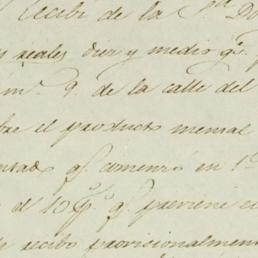 Recibi de la Sra Do
s reales diez y medio qe
mo 9 de la calle del
bre el producto mensual
ntado qe comenzó en 1o
el 10 pg qe previene e
te recibo provisionalment